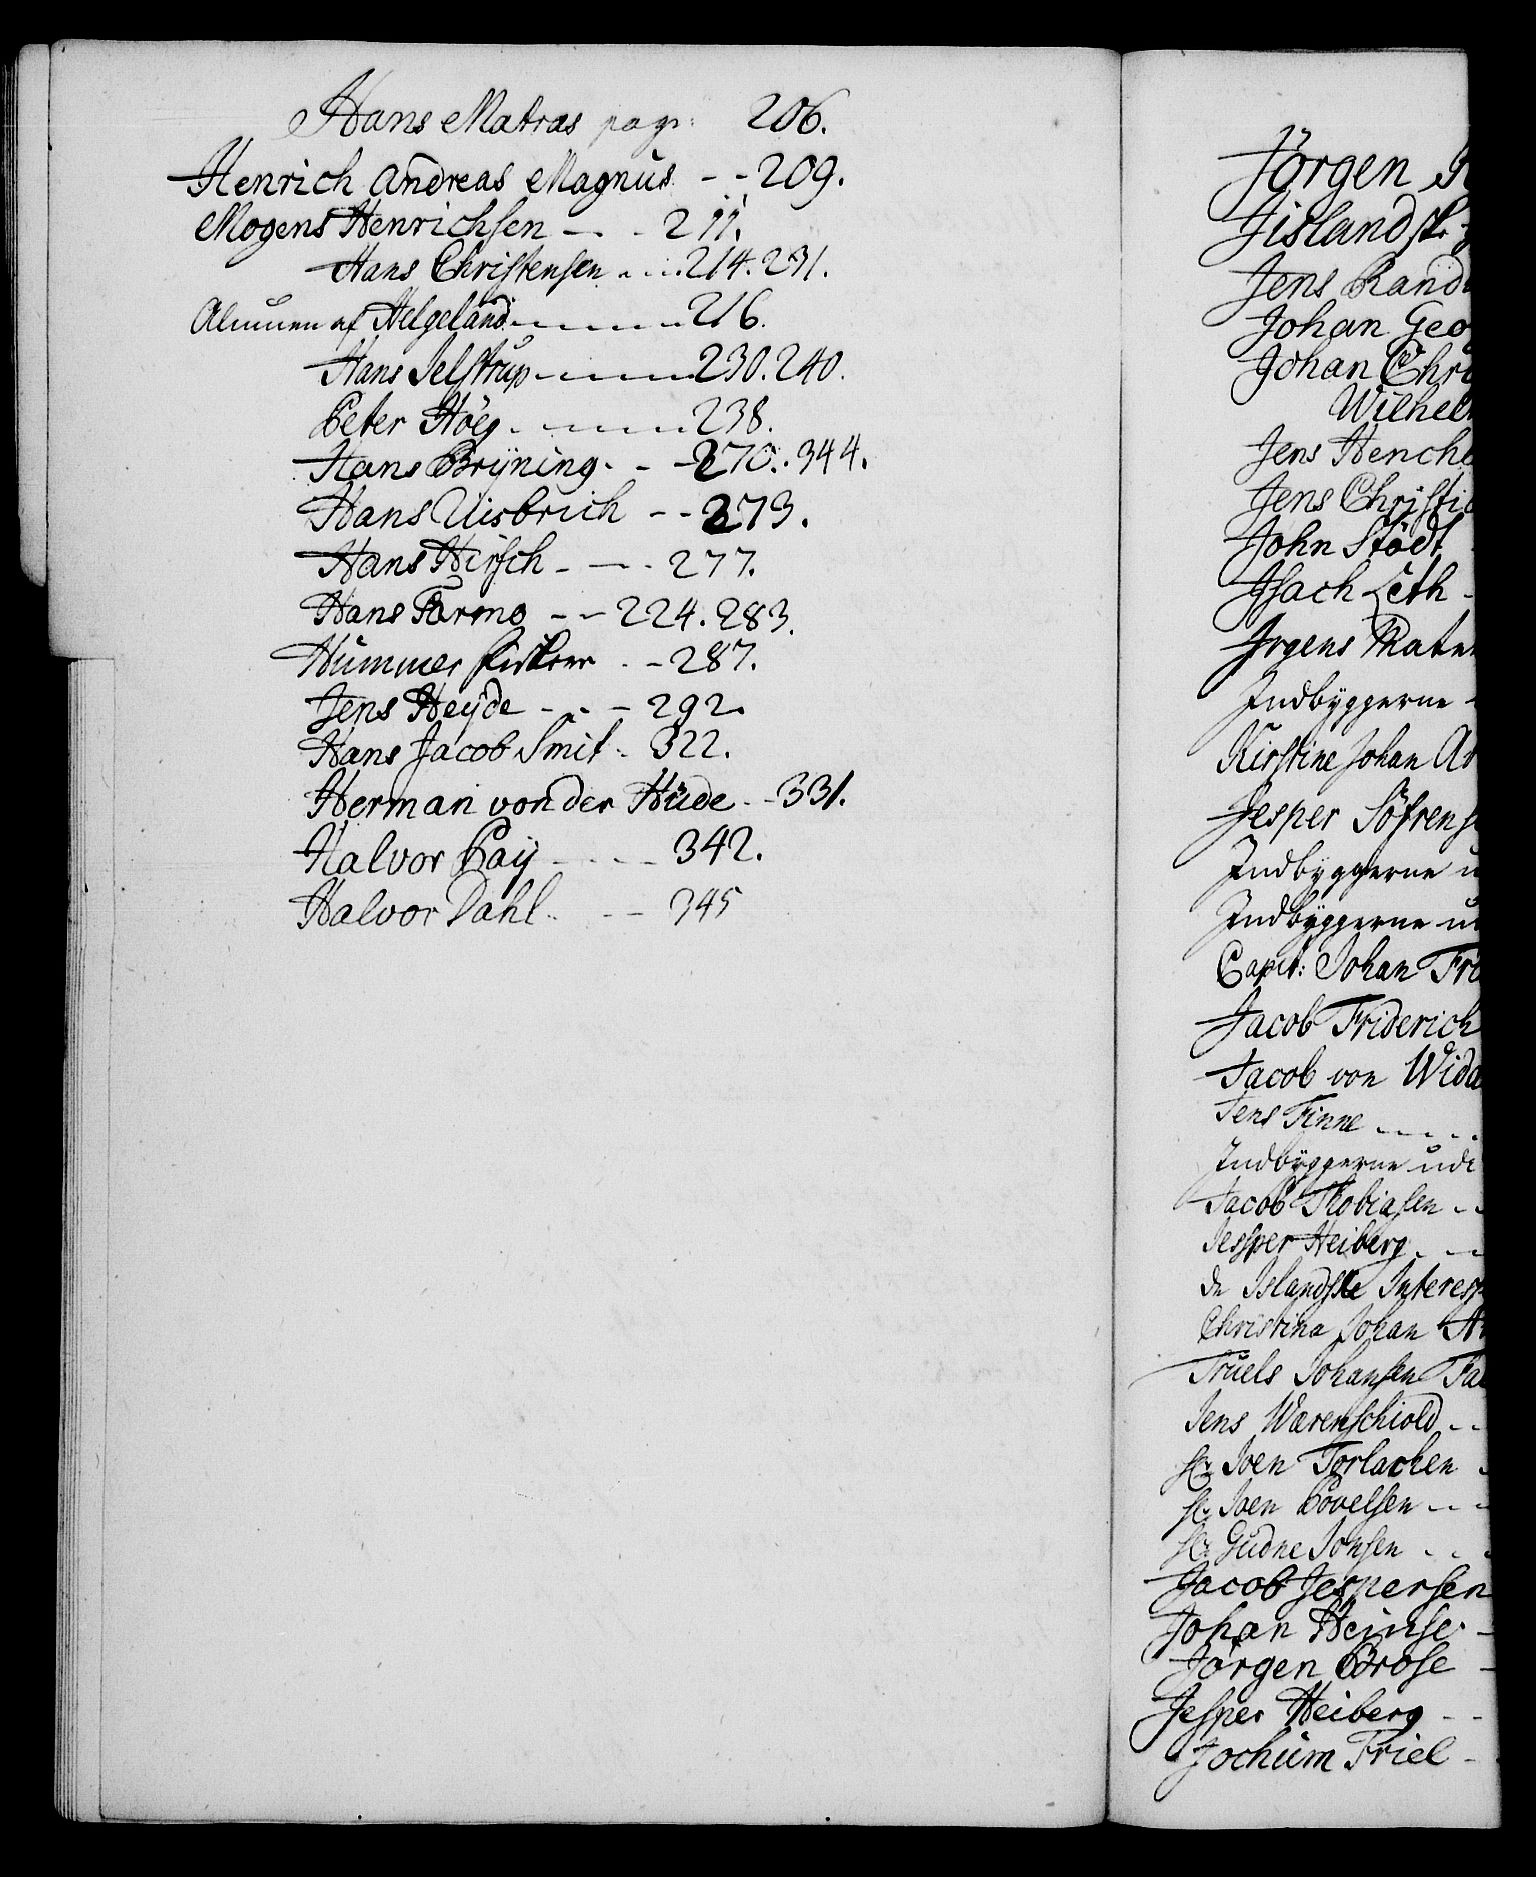 Hans Matras pag: 206.
Henrich Andreas Magnus - - 209.
Mogens Henrichsen - . - 211.
Hans Christensen . . . . 214. 231.
Almuen af Helgeland . - - - - 216.
Hans Jelstrup - - - - - 230. 240.
Peter Höeg . - - - - . 238.
Hans Brÿning . - - 270. . 344.
Hans Uisbrich - - 273.
Hans Hirsch - - . 277.
Hans Tarmo - - 224. 283.
Hummer - 287.
Jens Heÿde - . - 292.
Hans Jacob Smit . 322.
Herman von der Hüde . - 331.
Halvor Paÿ - . . - 342.
Halvor Dahl . . - - 345
Jörgen
Jislandsk
Jens Rand
Johan Geo
Johan Chri
Wilhel
Jens Henche
Jens Christi
John Stödt
Jsach Leth -
Jrgens
Indbÿggerne -
Kirstine Johan Ar
Jesper Söfrens
Indbÿggerne u
Indbÿggerne u
Capit: Johan Fri
Jacob Friderich
Jacob von Wida
Jens Finne - - - -
Indbÿggerne udi
Jacob Thobiasen - -
Jessper Heiberg . - -
de Islandske Interess
Christina Johan Ar
Truels Johansen Fa
Jens Wærenschiold - -
Sr. Joen Torlacken -
Sr. Joen Povelsen - - -
Sr. Gudne Jonsen . . .
Jacob Jespersen
Johan Heinse -
Jörgen Brose -
Jesper Heiberg - -
Jochum Friel -